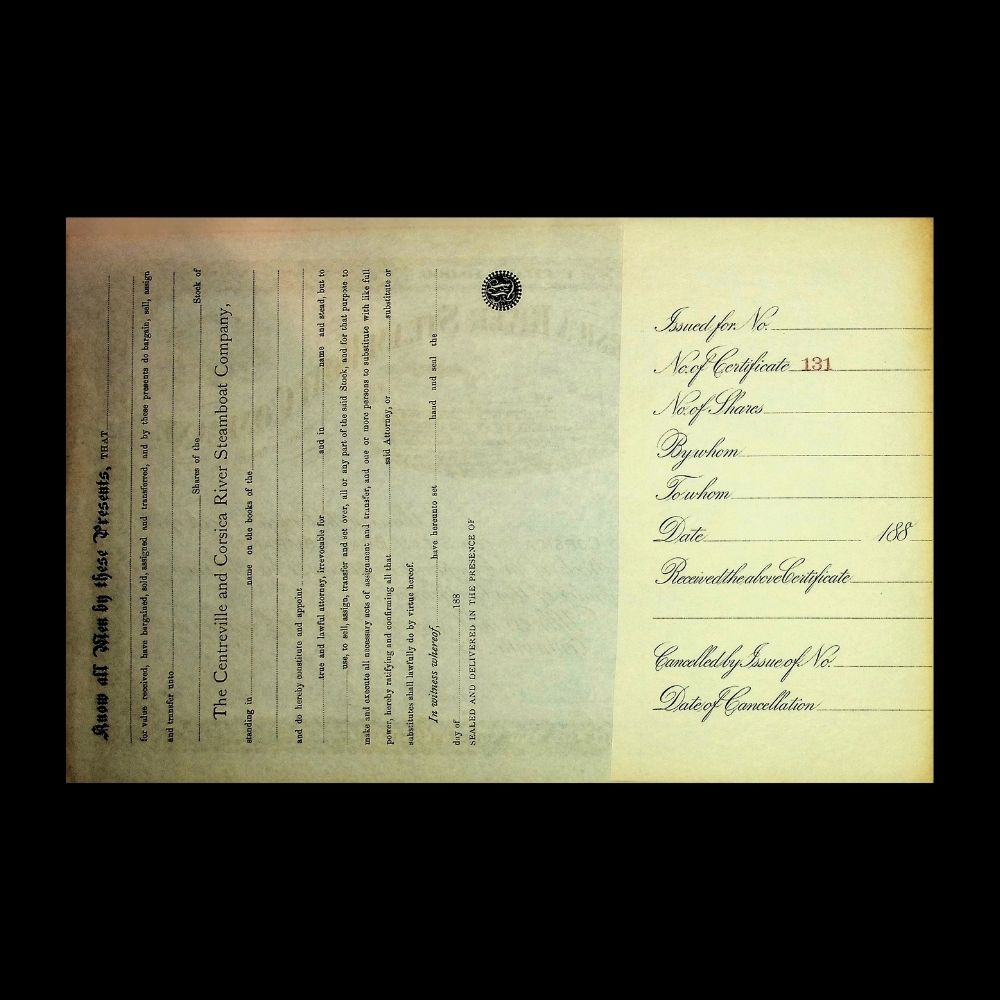 Know all Men by these Presents, THAT
for value received, have bargained, sold, assigned and transferred, and by these presents do bargain, sell, assign
and transfer unto
Shares of the Stock of
The Centreville and Corsica River Steamboat Company,
standing in name on the books of the
and do hereby constitute and appoint
true and lawful attorney, irrevocable for and in name and stead, but to
use, to sell, assign, transfer and set over, all or any part of the said Stock, and for that purpose to
make and execute all necessary acts of assignment and transfer, and one or more persons to substitute with like full
power, hereby ratifying and confirming all that said Attorney, or substitute or
substitutes shall lawfully do by virtue hereof.
In witness whereof, have hereunto set hand and seal the
day of 188
SEALED AND DELIVERED IN THE PRESENCE OF
Issued for No.
No. of Certificate 131
No. of Shares
By whom
To whom
Date 188
Received the above Certificate
Cancelled by Issue of No.
Date of Cancellation